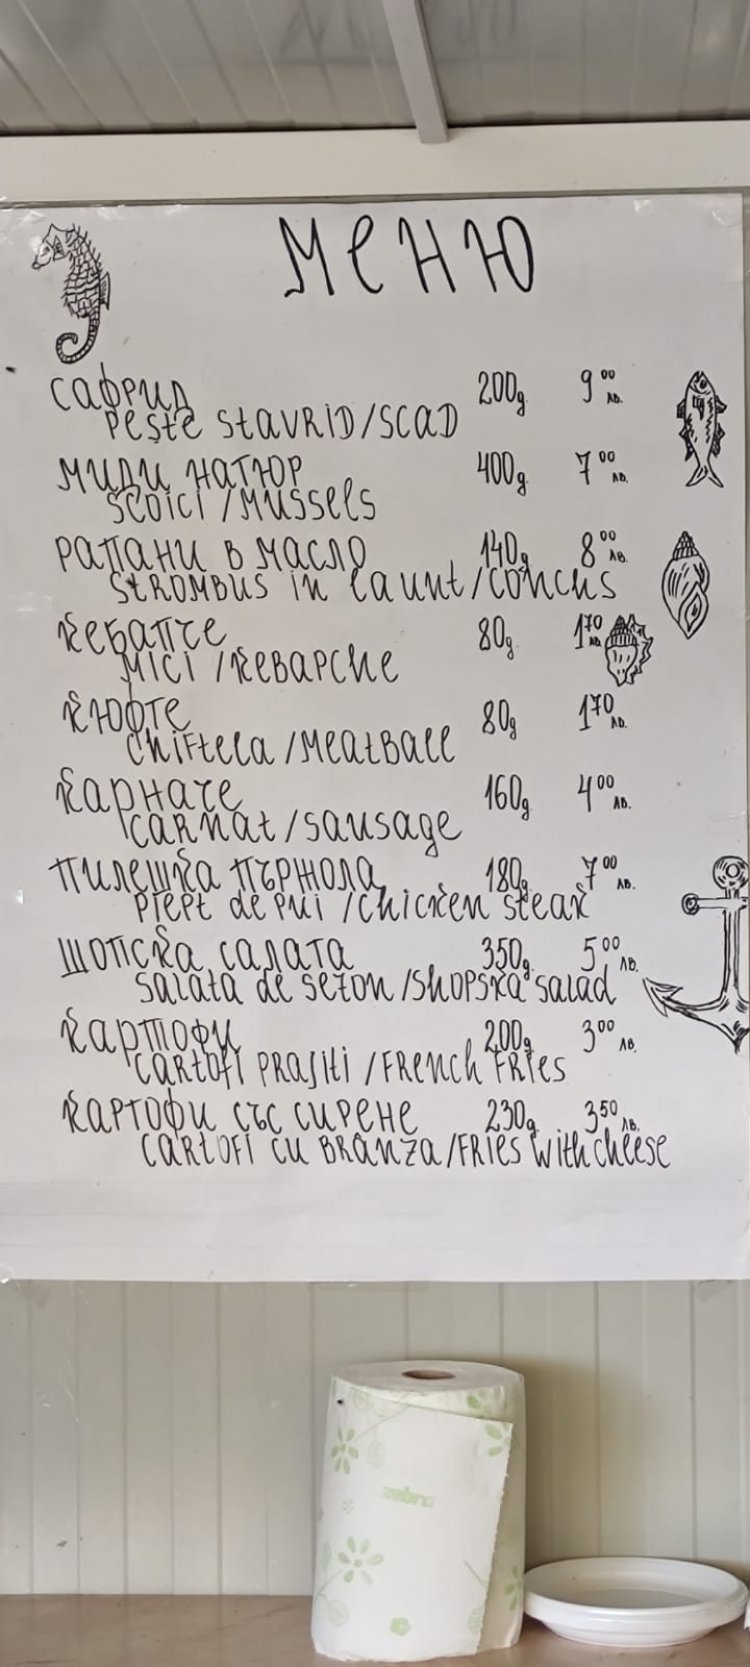 МЕНЮ
САФРИД 200g 9⁰⁰ ЛВ.
PEȘTE STAVRID/SCAD
МИДИ НАТЮР 400g 7⁰⁰ ЛВ.
SCOICI/MUSSELS
РАПАНИ В МАСЛО 140g 8⁰⁰ ЛВ.
STROMBUS IN LAUNT/CONCHS
КЕБАПЧЕ 80g 1⁷⁰ ЛВ.
MICI/KEBAPCHE
КЮФТЕ 80g 1⁷⁰ ЛВ.
CHIFTELA/MEATBALL
КАРНАЧЕ 160g 4⁰⁰ ЛВ.
CARNAT/SAUSAGE
ПИЛЕШКА ПЪРЖОЛА 180g 7⁰⁰ ЛВ.
PIEPT DE PUI/CHICKEN STEAK
ШОПСКА САЛАТА 350g 5⁰⁰ ЛВ.
SALATA DE SEZON/SHOPSKA SALAD
КАРТОФИ 200g 3⁰⁰ ЛВ.
CARTOFI PRAJITI/FRENCH FRIES
КАРТОФИ СЪС СИРЕНЕ 230g 3⁵⁰ ЛВ.
CARTOFI CU BRÂNZA/FRIES WITH CHEESE
zebra